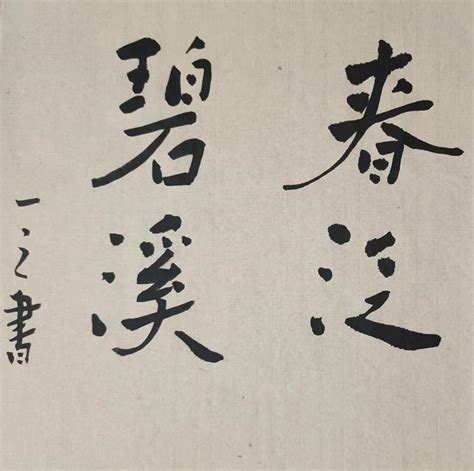 春泛
碧溪
一之書